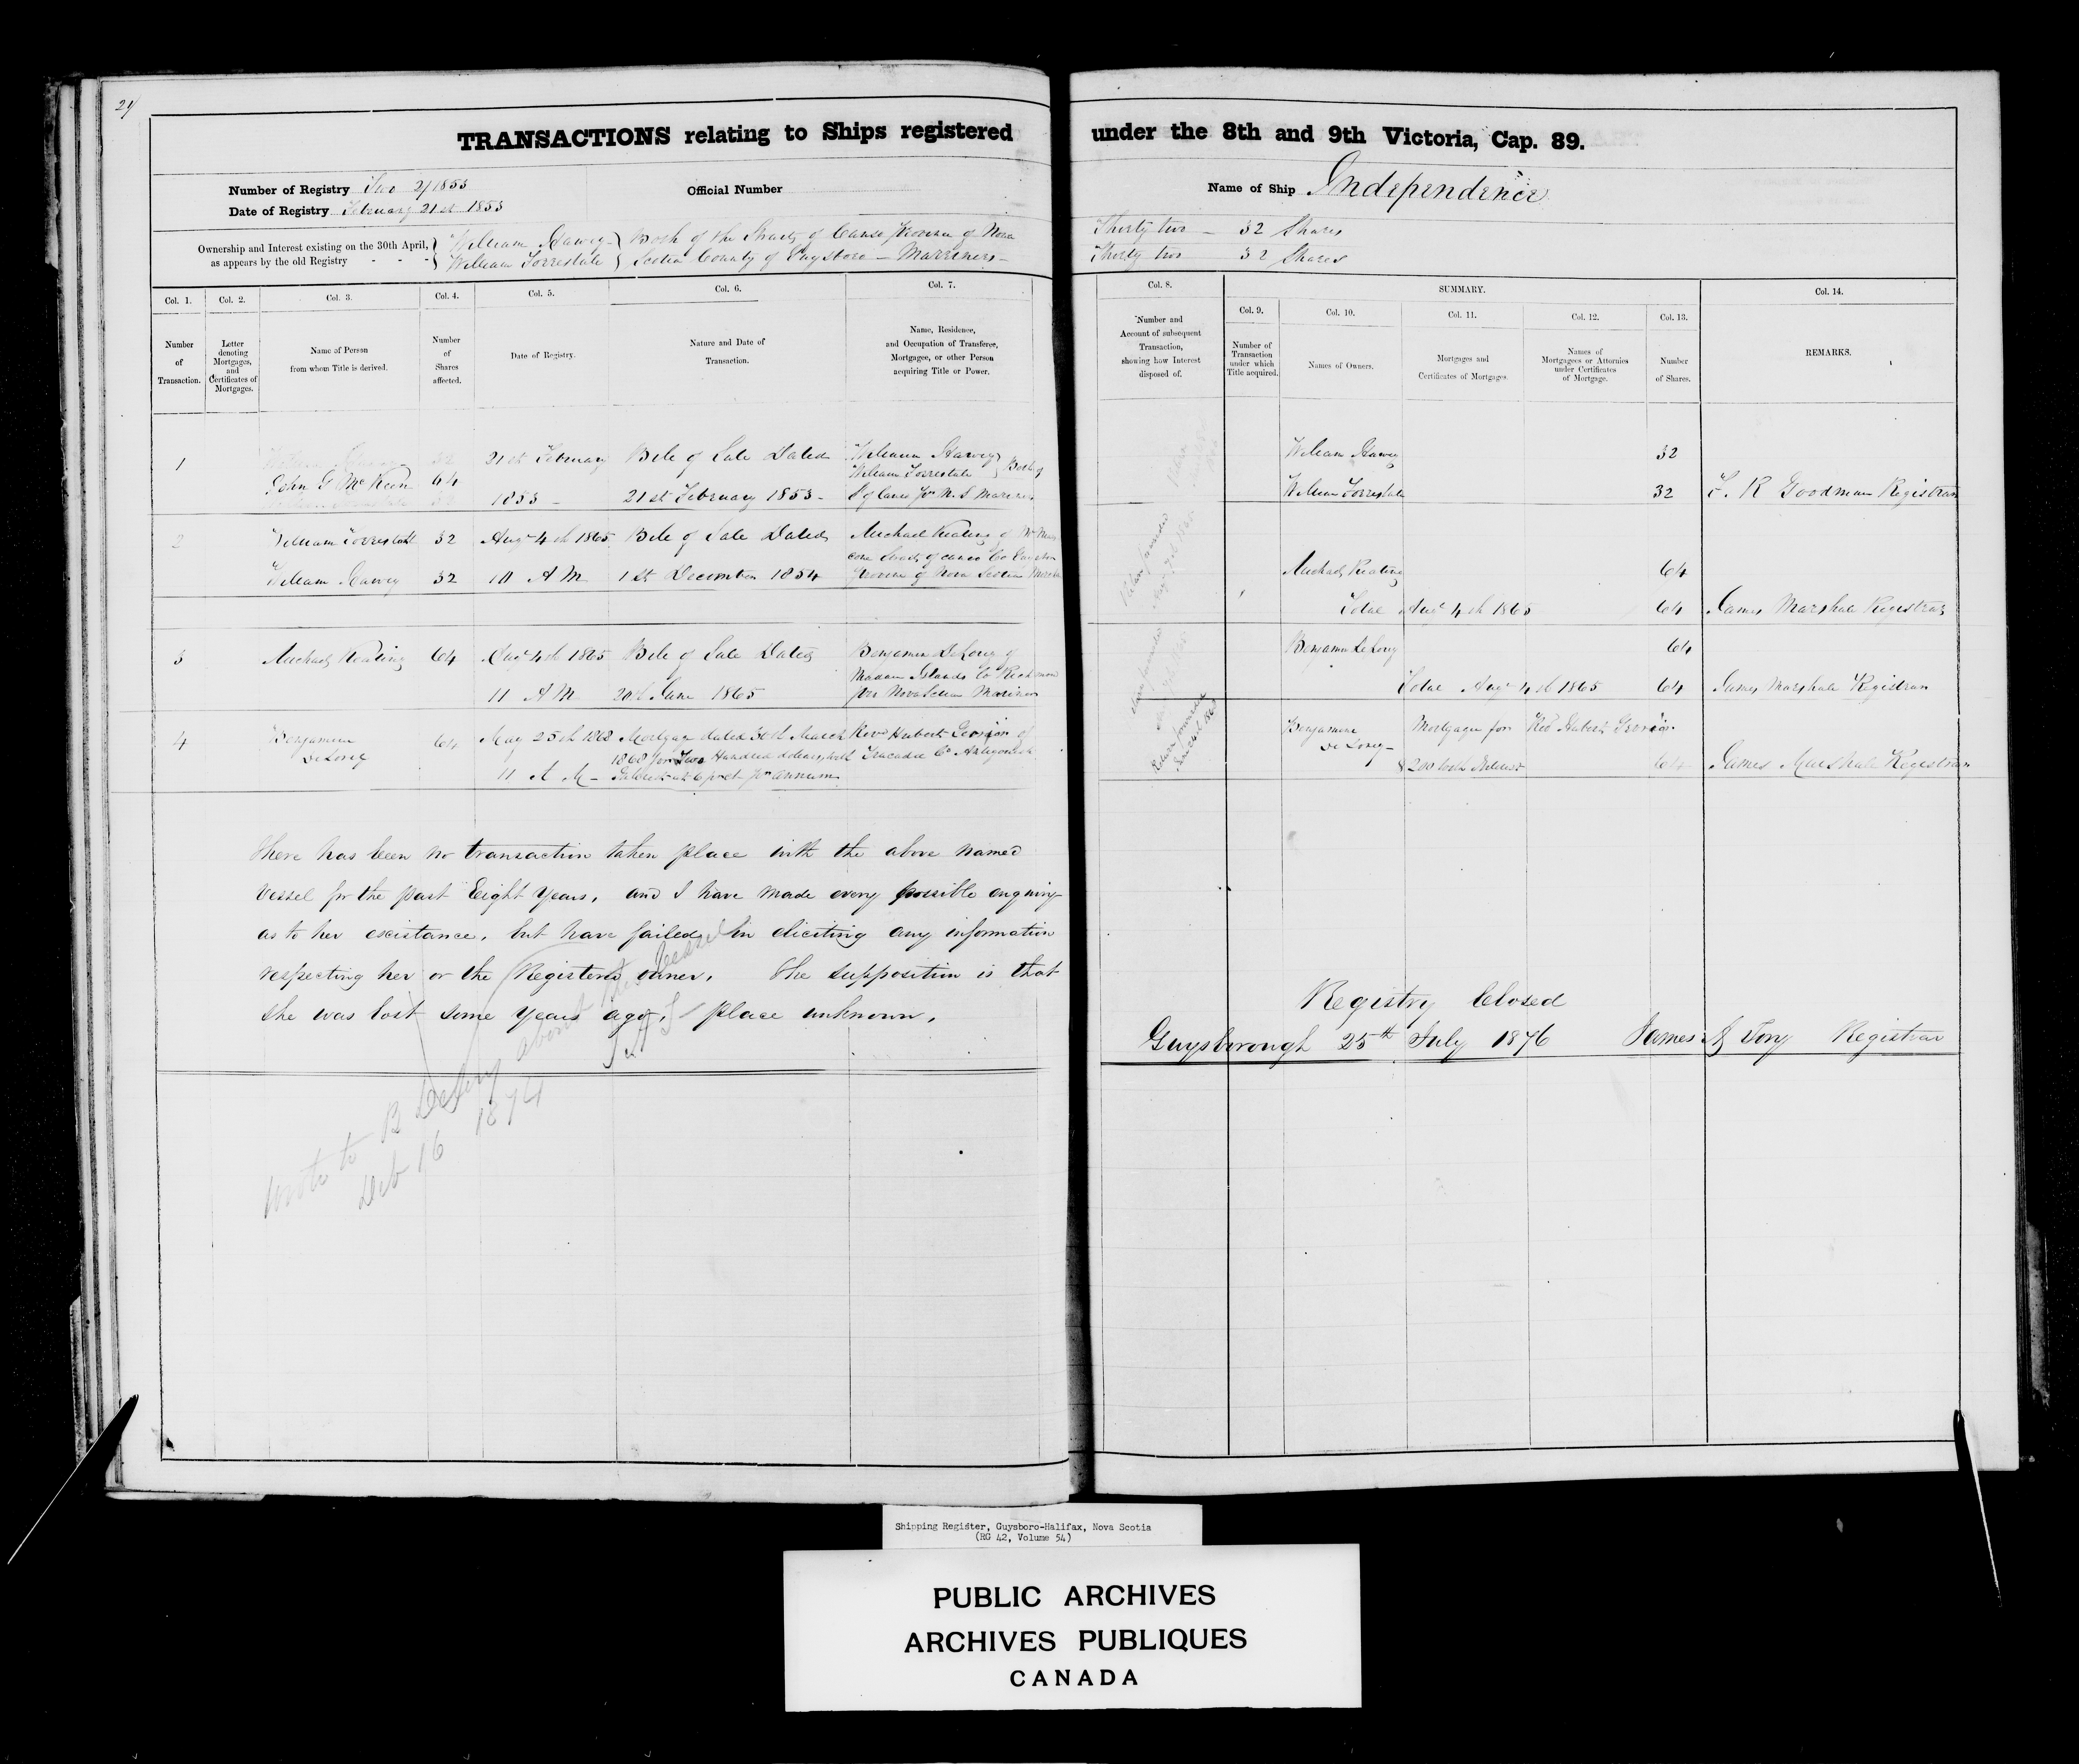 24
TRANSACTIONS relating to Ships registered under the 8th and 9th Victoria, Cap. 89.
Number of Registry Two 2/1853
Official Number
Name of Ship Independence
Date of Registry February 21st 1853
Ownership and Interest existing on the 30th April, as appears by the old Registry - - -
William Harvey Both of the Straits of Canso Province of Nova
Thirty two - 32 Shares
William Forrestale Scotia County of Guysboro - Marriners -
Thirty two 32 Shares
Col. 1. Number of Transaction.
Col. 2. Letter denoting Mortgages, and Certificates of Mortgages.
Col. 3. Name of Person from whom Title is derived.
Col. 4. Number of Shares affected.
Col. 5. Date of Registry.
Col. 6. Nature and Date of Transaction.
Col. 7. Name, Residence, and Occupation of Transferee, Mortgagee, or other Person acquiring Title or Power.
Col. 8. Number and Account of subsequent Transaction, showing how Interest disposed of.
SUMMARY.
Col. 9. Number of Transaction under which Title acquired.
Col. 10. Names of Owners.
Col. 11. Mortgages and Certificates of Mortgages.
Col. 12. Names of Mortgagees or Attornies under Certificates of Mortgage.
Col. 13. Number of Shares.
Col. 14. REMARKS.
1
John G McKeen 64
21st February
1853
Bile of Sale Dated
21st February 1853 -
William Harvey
William Forrestale Both of
S of Canso N. S Mariners
William Harvey 32
William Forrestale 32
R Goodman Registrar
2
William Forrestall 32
William Harvey 32
Augt 4th 1865
10 A M
Bile of Sale Dated
1st December 1854
Michael Keating of
Straits of Canso Co Guysboro
Province of Nova Scotia
Return forwarded
Michael Keating 64
Total Augt 4th 1865 64
James Marshall Registrar
3
Michael Keating 64
Augt 4th 1865
11 A M
Bile of Sale Dated
20th June 1865
Benjamin DeLorey of
Madam Islands Co Richmond
Nova Scotia Mariner
Benjamin DeLorey 64
Total Augt 4th 1865 64
James Marshall Registrar
4
Benjamin
DeLorey
64
May 25th 1868
11 A M -
Mortgage dated 30th March
1868 for Two Hundred dollars with
Interest at 6 pr ct pr annum
Revd Hubert Girroir of
Tracadie Co Antigonish
Return forwarded
Benjamin
DeLorey -
Mortgage for
$200 with Interest
Revd Hubert Girroir
64
James Marshall Registrar
There has been no transaction taken place with the above named
vessel for the past Eight years, and I have made every possible enquiry
as to her excistance, but have failed in eliciting any information
respecting her or the Registered owner. The supposition is that
she was lost some years ago, place unknown.
Registry Closed
Guysborough 25th July 1876 James A Tory Registrar
Wrote to B DeLory about this vessel
Deb 16 1874
Shipping Register, Guysboro-Halifax, Nova Scotia
(RG 42, Volume 54)
PUBLIC ARCHIVES
ARCHIVES PUBLIQUES
CANADA